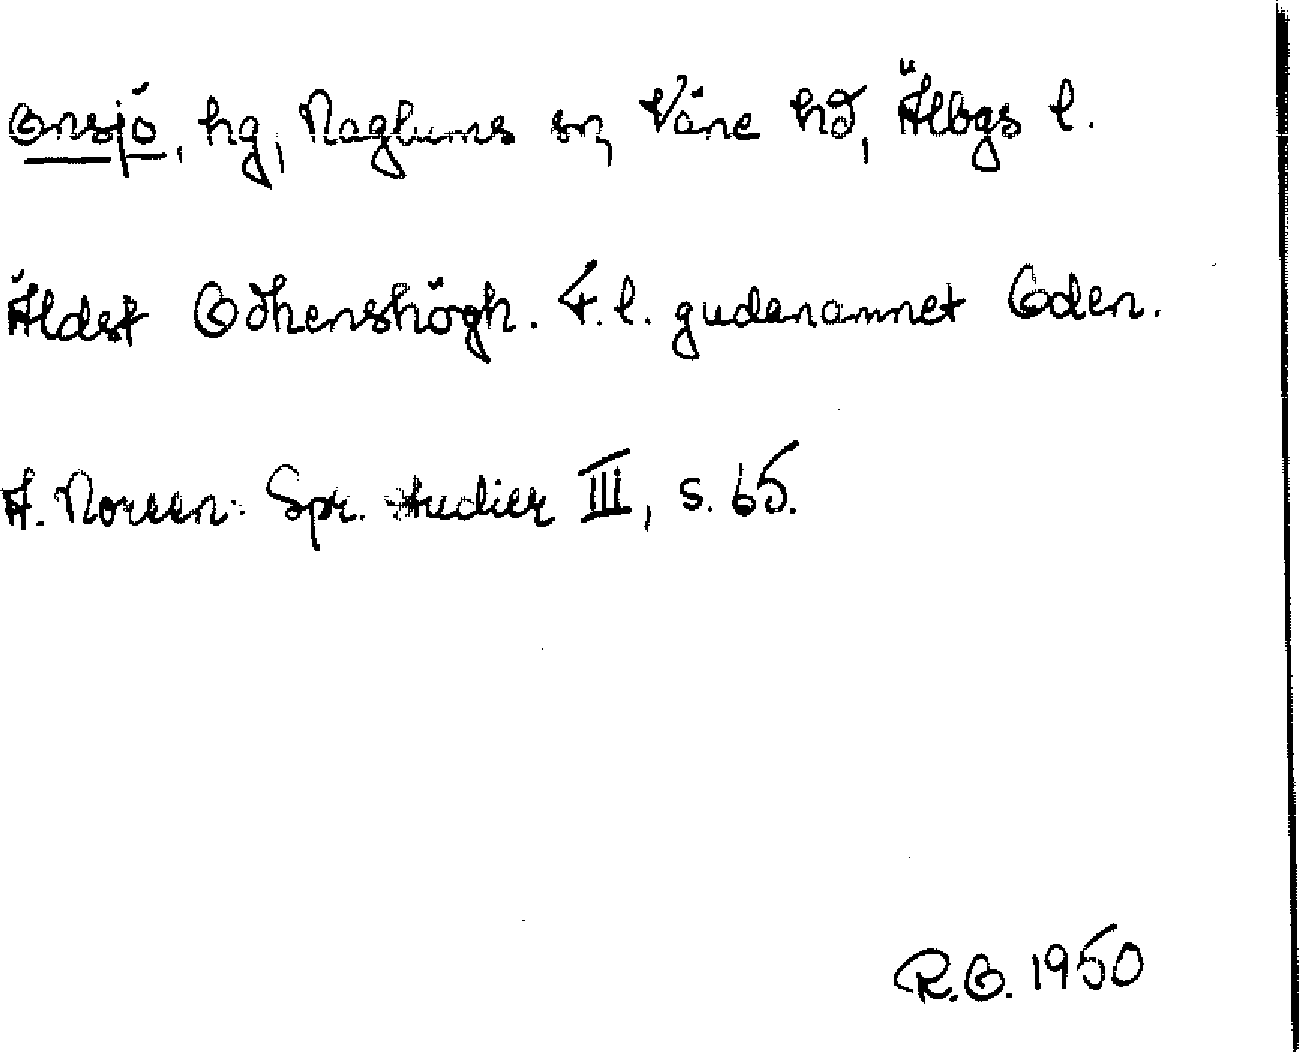 Onsjö, hg, Naglums sn, Väne hd, Älvbgs l.
Äldst Odhenshögh. F. l. gudanamnet Oden.
A. Noreen: Spr. studier III, s. 65.
R.O. 1950